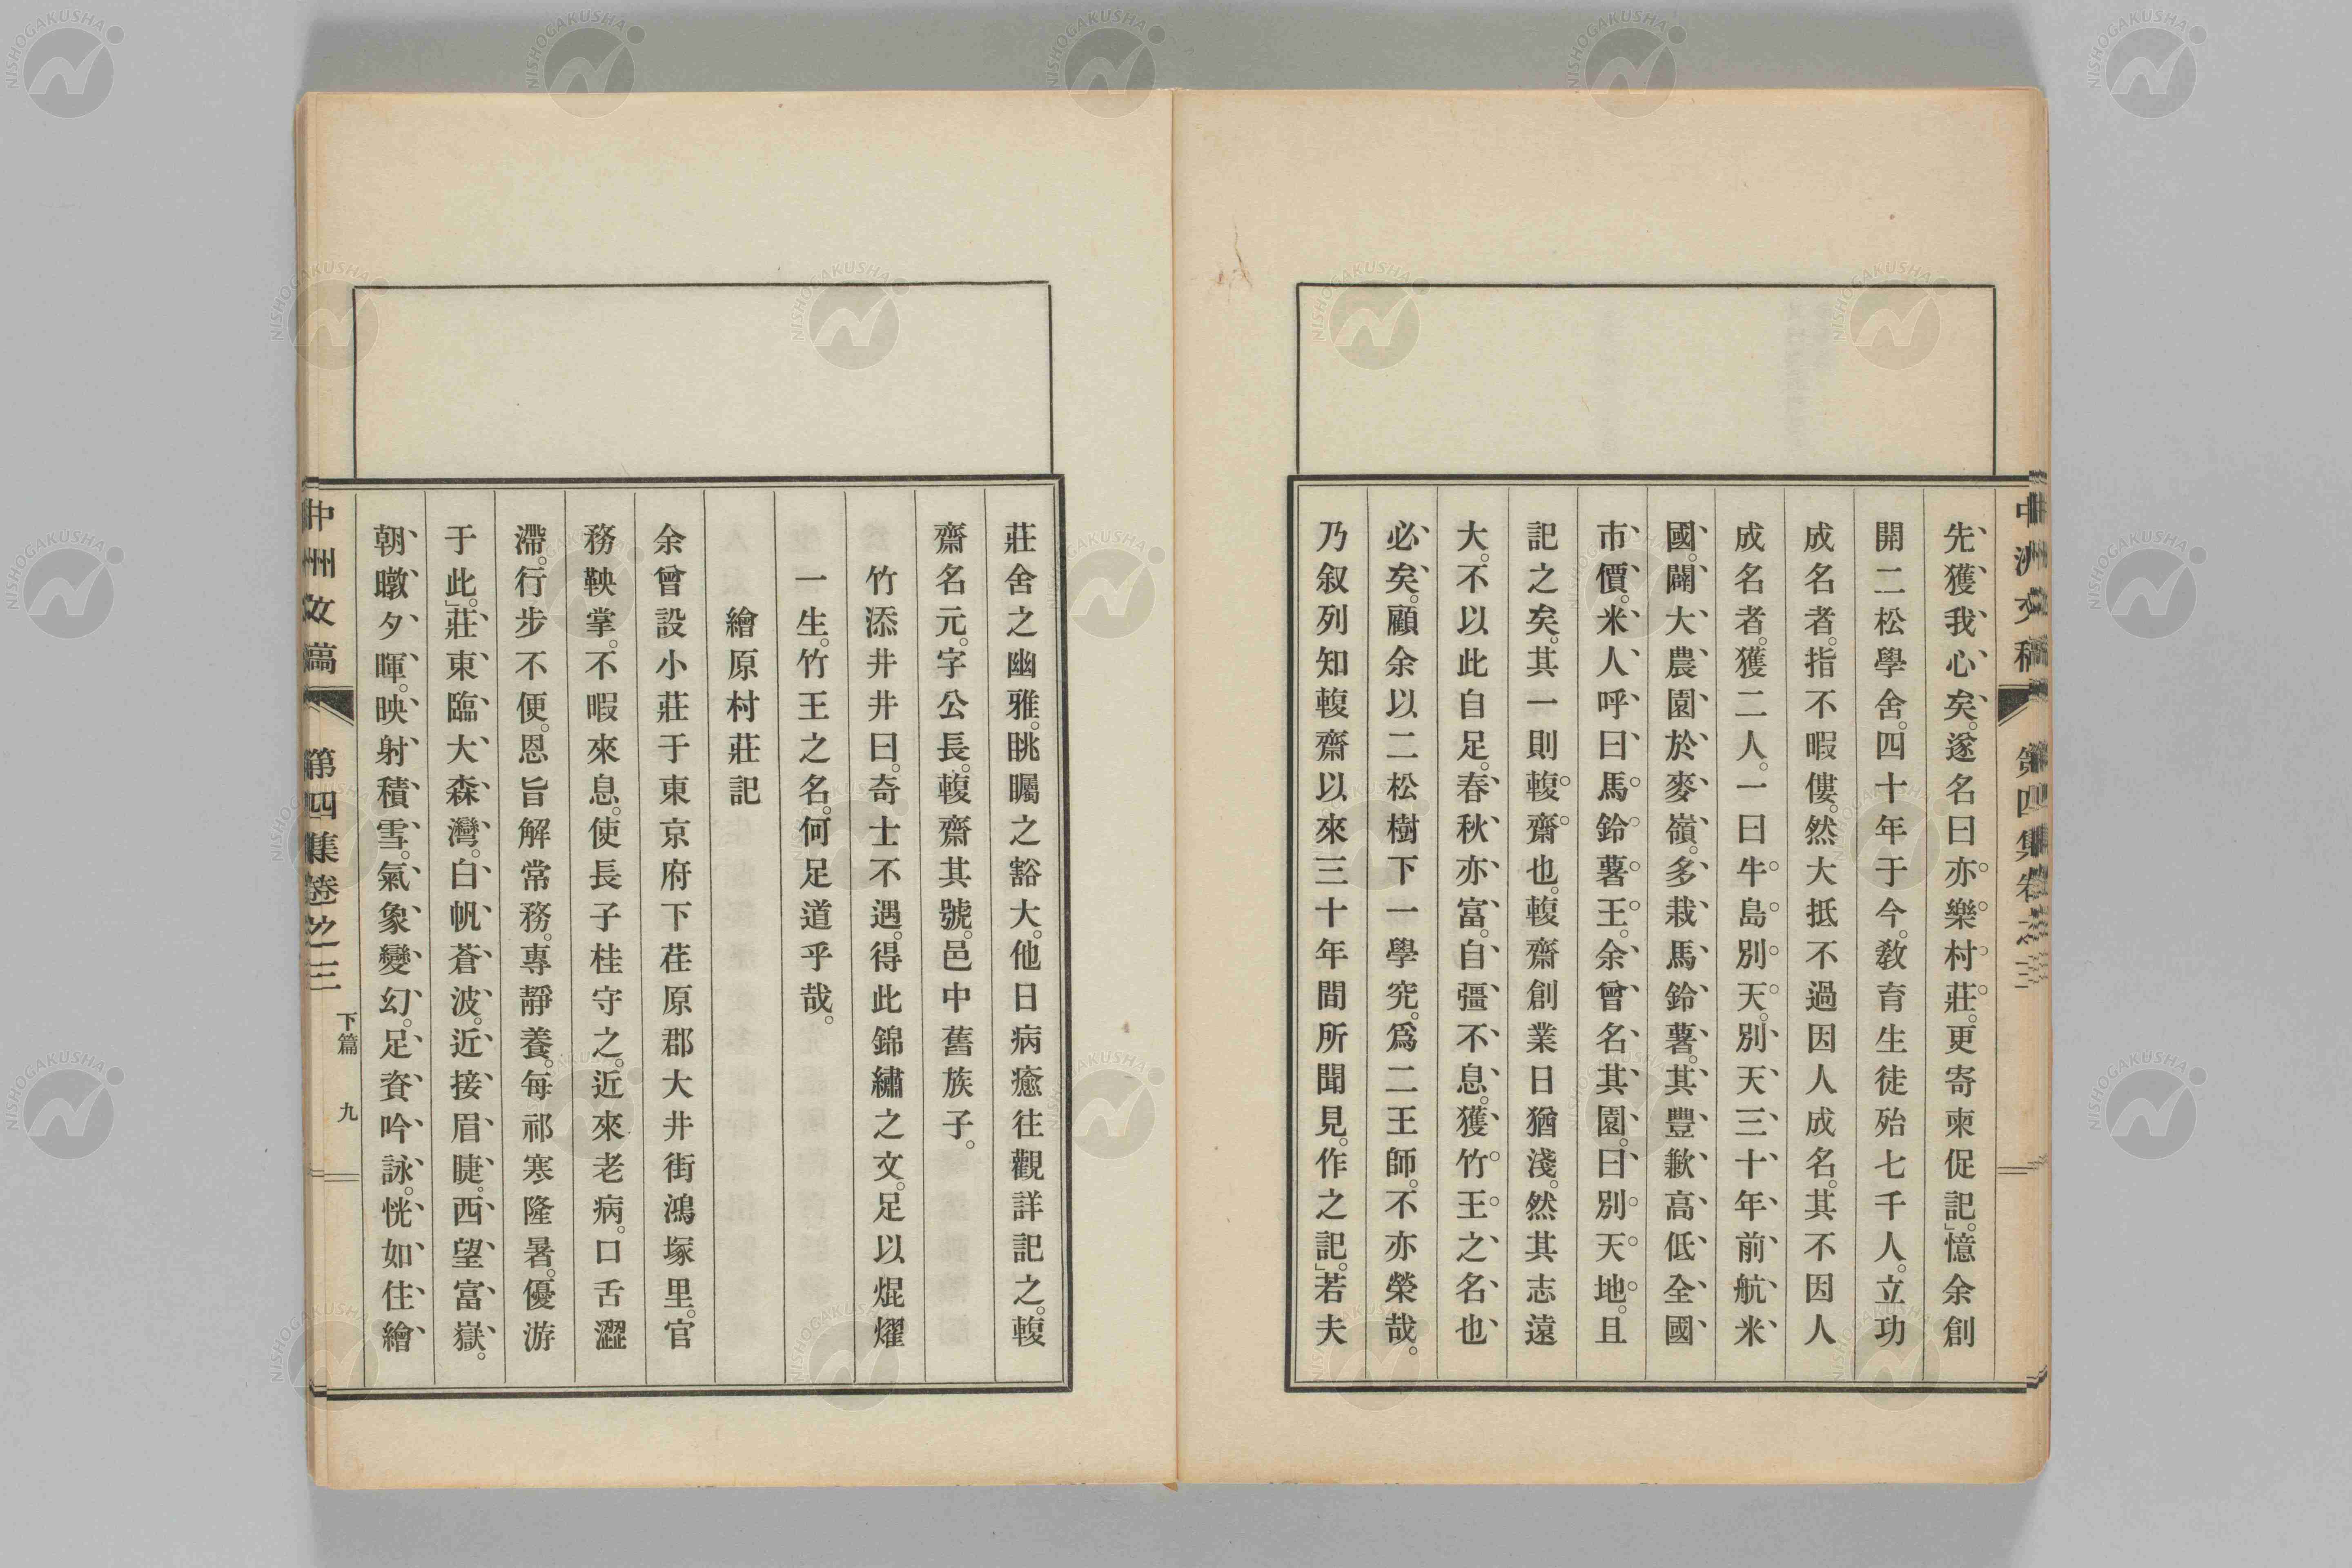 先獲我心矣。遂名曰亦樂村莊。更寄柬促記。」憶余創
開二松學舍。四十年于今。教育生徒殆七千人。立功
成名者。指不暇僂。然大抵不過因人成名。其不因人
成名者。獲二人。一曰牛島別天。別天三十年前航米
國。闢大農園於麥嶺。多栽馬鈴薯。其豐歉高低全國
市價。米人呼曰馬鈴薯王。余曾名其園。曰別天地。且
記之矣。其一則輹齋也。輹齋創業日猶淺。然其志遠
大。不以此自足。春秋亦富。自彊不息。獲竹王之名也
必矣。顧余以二松樹下一學究。爲二王師。不亦榮哉。
乃叙列知輹齋以來三十年間所聞見。作之記。」若夫
莊舍之幽雅。眺矚之豁大。他日病癒往觀詳記之。輹
齋名元。字公長。輹齋其號。邑中舊族子。
竹添井井曰。奇士不遇。得此錦繡之文。足以焜燿
一生。竹王之名。何足道乎哉。
繪原村莊記
余曾設小莊于東京府下荏原郡大井街鴻塚里。官
務鞅掌。不暇來息。使長子桂守之。近來老病。口舌澀
滯。行步不便。恩旨解常務。專靜養。每祁寒隆暑。優游
于此。」莊東臨大森灣。白帆蒼波。近接眉睫。西望富嶽。
朝暾夕暉。映射積雪。氣象變幻。足資吟詠。恍如住繪
中洲文稿 第四集卷之三 下篇 九